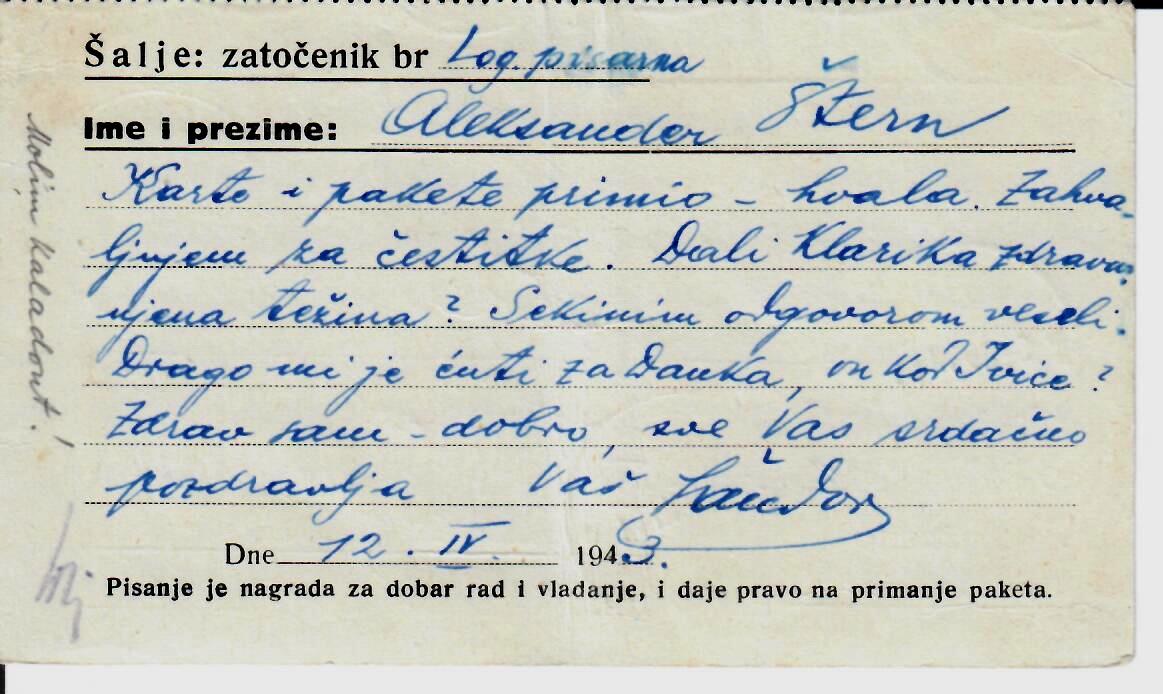 Šalje: zatočenik br Log. pisarna
Ime i prezime: Aleksander Štern
Karte i pakete primio – hvala. Zahva-
ljujem za čestitke. Dali Klarika zdrava?
njena težina? Sekinim odgovorom veseli.
Drago mi je ćuti za Danka, on kod Ivice?
Zdrav sam – dobro, sve Vas srdačno
pozdravlja Vaš Šandor
Dne 12. IV. 1943.
Pisanje je nagrada za dobar rad i vladanje, i daje pravo na primanje paketa.
Molim kaladont!